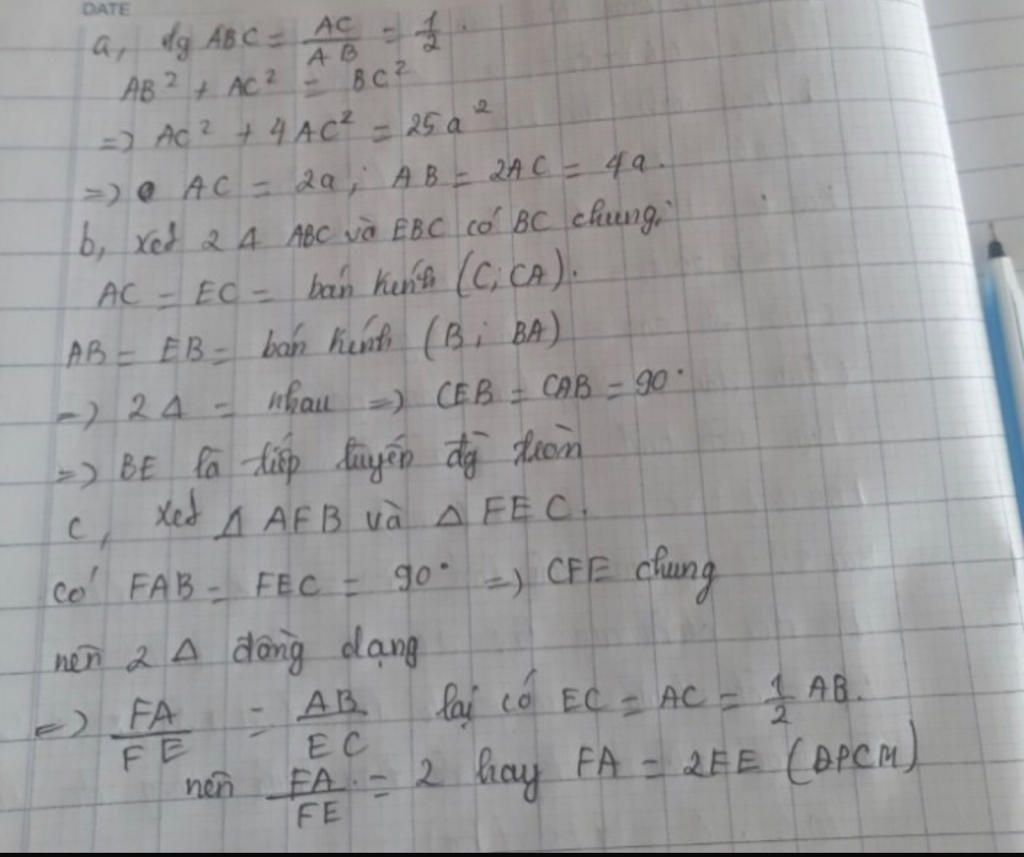 DATE
a, tg ABC = AC/AB = 1/2.
AB² + AC² = BC²
=> AC² + 4AC² = 25a²
=> AC = 2a; AB = 2AC = 4a.
b, xet 2 Δ ABC và EBC có BC chung.
AC = EC = bán kính (C; CA).
AB = EB = bán kính (B; BA)
=> 2 Δ = nhau => CEB = CAB = 90°
=> BE là tiếp tuyến đg tròn
c, xet Δ AFB và Δ FEC.
có FAB = FEC = 90° => CFE chung
nên 2 Δ đồng dạng
=> FA/FE = AB/EC lại có EC = AC = 1/2 AB.
nên FA/FE = 2 hay FA = 2FE (ĐPCM)